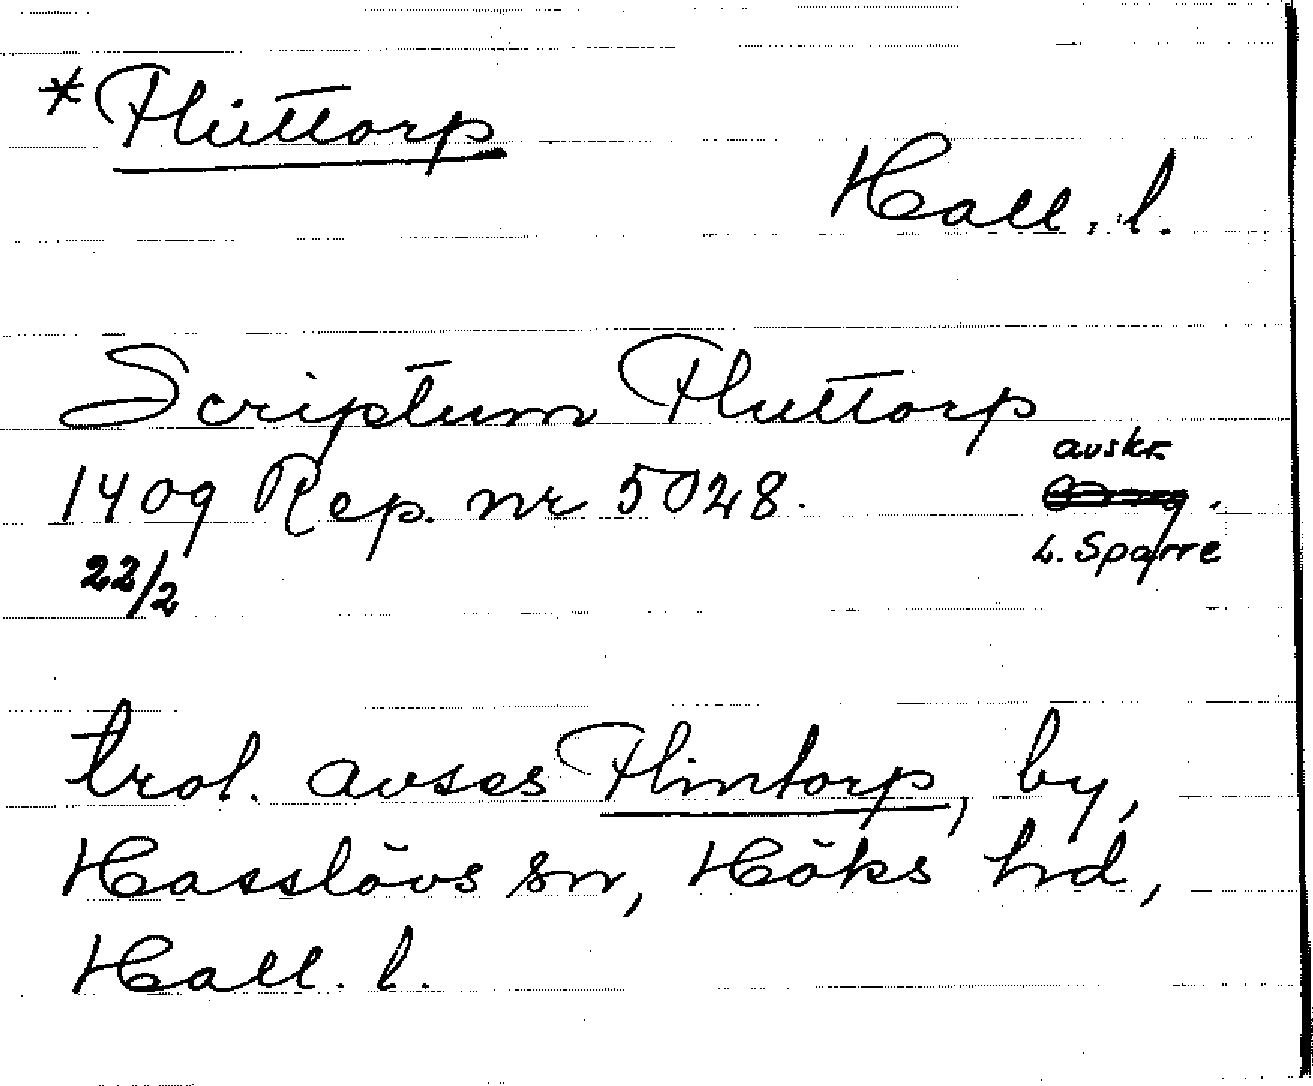 *Fluttorp
Hall. l.
Scriptum Fluttorp
avskr.
1409 Rep. nr 5028.
L. Sparre
22/2
trol. avses Flintorp, by,
Hasslövs sn, Höks hd,
Hall. l.